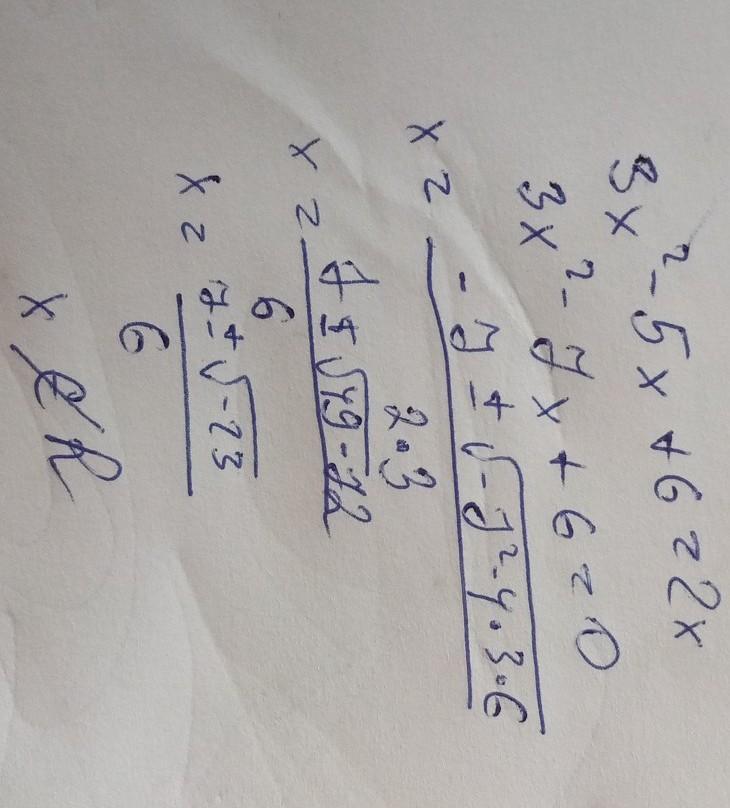 3x² - 5x + 6 = 2x
3x² - 7x + 6 = 0
x = (-7 ± √(-7² - 4·3·6)) / (2·3)
x = (7 ± √(49 - 72)) / 6
x = (7 ± √(-23)) / 6
x ∉ R